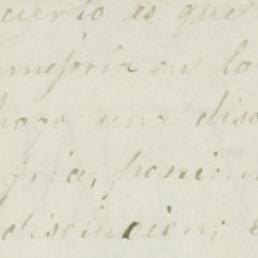 cierto es que
mejoria en la
hago una diso
fria, ponien
disolucion;